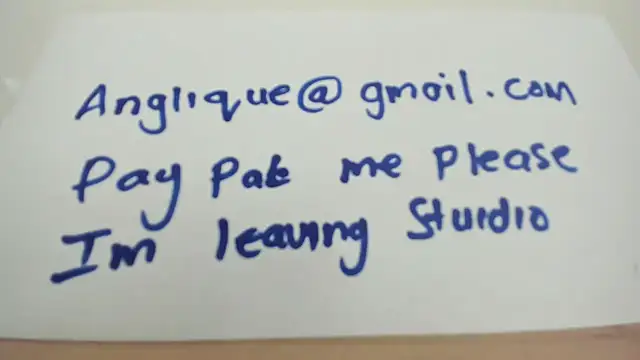 Anglique@gmail.com
Pay Pal me please
Im leaving Sturdio